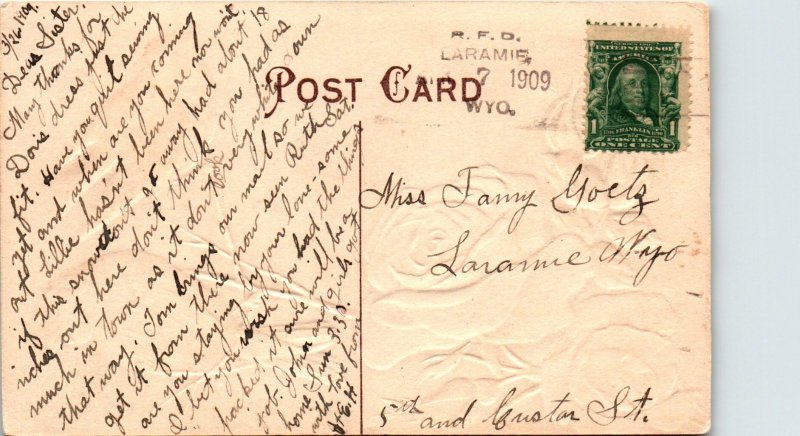 3/26 1909.
Dear Sister,
Many thanks for
Doris dress, just the
fit. Have you quit seeing
and when are you coming
out
Lillie hasn't been here now wait
if this snow don't go away had about 18
inches out here don't think you had as
much in town as it don't look very white down
that way. Tom brings our mail so we
get it from there now seen Ruth Sat.
are you staying by your lone-some
I bet you wish you had the things
packed, it sure will be a
job. John and girls got
home Sun 3:30.
with love from
H.E.H
POST CARD
R.F.D.
LARAMIE,
7 1909
WYO.
SERIES 1902
UNITED STATES OF
AMERICA
FRANKLIN
POSTAGE
1 ONE CENT 1
Miss Tamy Goetz
Laramie Wyo
5th and Custar St.